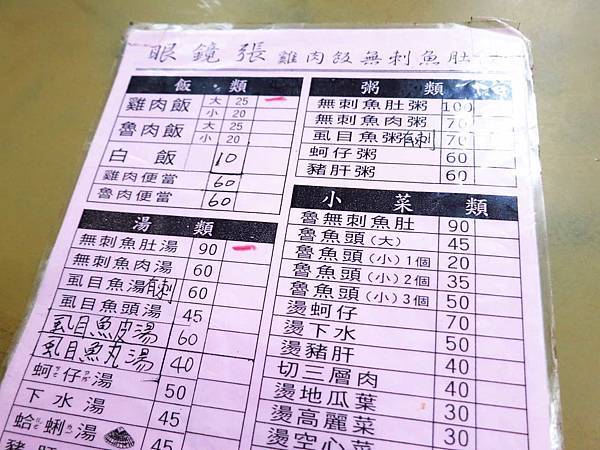 眼鏡張 雞肉飯無刺魚肚
飯類
雞肉飯 大 25
小 20
魯肉飯 大 25
小 20
白飯 10
雞肉便當 60
魯肉便當 60
湯類
無刺魚肚湯 90
無刺魚肉湯 60
虱目魚湯有刺 60
虱目魚頭湯 45
虱目魚皮湯 60
虱目魚丸湯 40
蚵仔湯 50
下水湯 45
蛤蜊湯 45
豬肝
粥類
無刺魚肚粥 100
無刺魚肉粥 70
虱目魚粥有刺 70
蚵仔粥 60
豬肝粥 60
小菜類
魯無刺魚肚 90
魯魚頭(大) 45
魯魚頭(小)1個 20
魯魚頭(小)2個 35
魯魚頭(小)3個 50
燙蚵仔 70
燙下水 50
燙豬肝 40
切三層肉 40
燙地瓜葉 30
燙高麗菜 30
燙空心菜 30